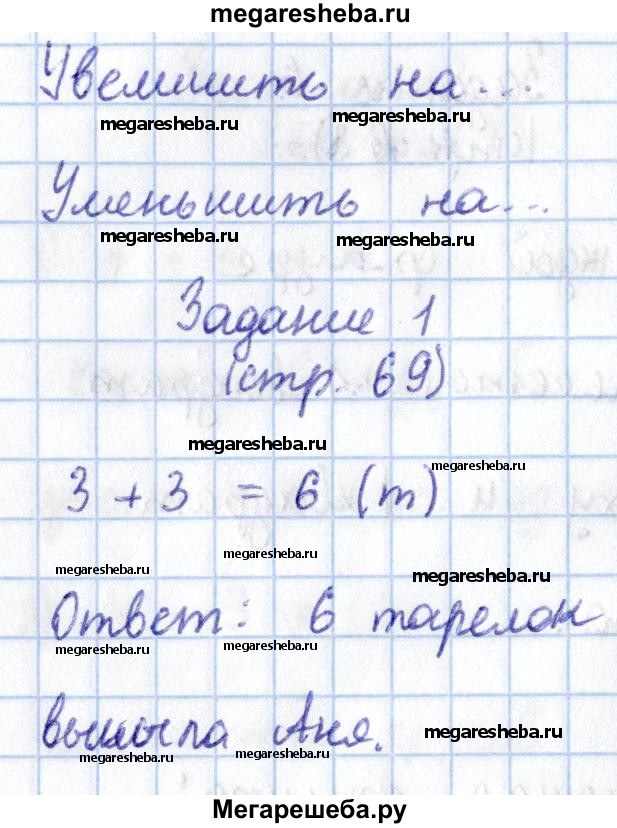 megaresheba.ru
Увеличить на...
megaresheba.ru megaresheba.ru
Уменьшить на...
megaresheba.ru megaresheba.ru
Задание 1
(стр. 69)
megaresheba.ru megaresheba.ru
3 + 3 = 6 (т)
megaresheba.ru megaresheba.ru megaresheba.ru
Ответ: 6 тарелок
megaresheba.ru megaresheba.ru
вымыла Аня.
megaresheba.ru megaresheba.ru megaresheba.ru
Мегарешеба.ру